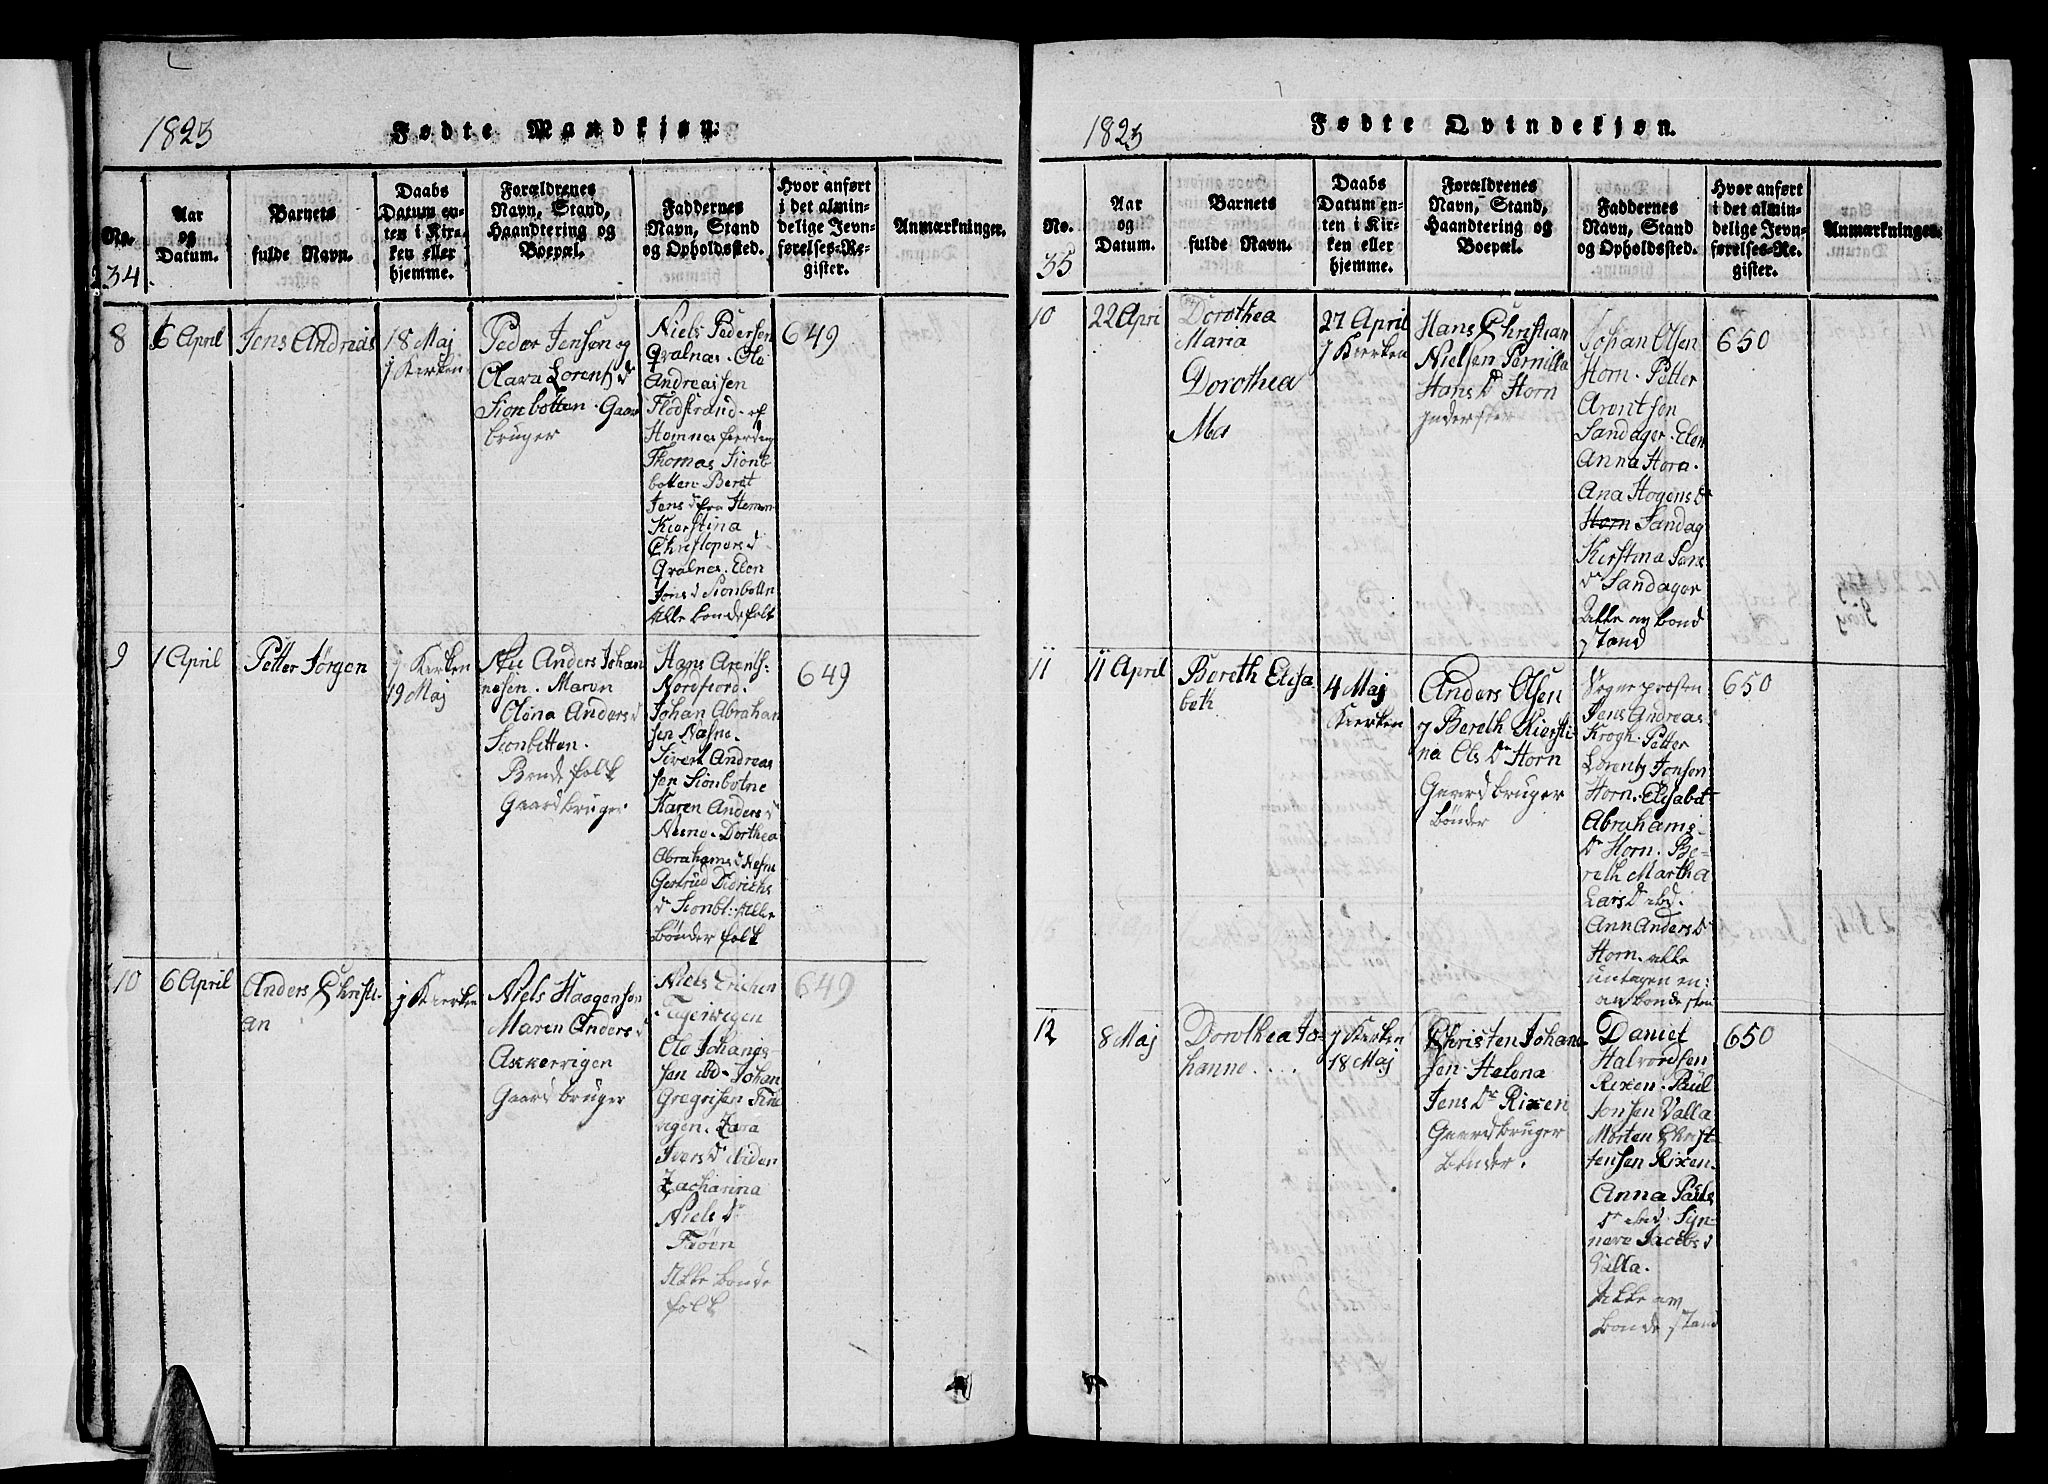 1823
Fødte Mandkjøn.
No.
34
Aar
og
Datum.
Barnets
fulde Navn.
Daabs
Datum en-
ten i Kir-
ken eller
hjemme.
Forældrenes
Navn, Stand,
Haandtering og
Boepæl.
Faddernes
Navn, Stand
og Opholdssted.
Hvor anført
i det almin-
delige Jevn-
førelses-Re-
gister.
Anmærkninger.
8
6 April
Jens Andreas
18 Maj
j Kirken
Peder Jensen og
Olava Lorentz d
Sionbotten. Gaar
bruger
Niels Pedersen
Qvalnes. Ole
Andreassen
Flodstrand. of
Homnes
Thomas Sionb
botten. Beret
Jens d fra Hemn
Kierstina
Christopers d
Qvalnes. Elen
Jens d Sionbottn
Alle bondefolk
649
9
1 April
Petter Jørgen
j Kirken
19 Maj
Anders Johan
nesen. Maren
Olena Anders d
Sionbotten.
Bondefolk
Gaardbruger
Hans Arents:
Nordfiord.
Johan Abraham
sen Næsne.
Sivert Andreas
sen Sionbotne
Karen Anders d
Nesne. Dorthea
Abrahams d Nesne
Gertrud Didrichs
d Sionbt: Alle
bønder folk
649
10
6 April
Anders Christi-
an
j Kirken
Niels Haagensen
Maren Anders d
Akkervigen
Gaardbruger
Niels Erichsen
Ole Johanis
sen ibd. Johan
Gregrisen Fine
vegen. Zara
Ivers d ibiden
Zacharina
Niels Dr
Alle bonde
folk
649
1823
Fødte Qvindekjøn.
No.
35
Aar
og
Datum.
Barnets
fulde Navn.
Daabs
Datum en-
ten i Kir-
ken eller
hjemme.
Forældrenes
Navn, Stand,
Haandtering og
Boepæl.
Faddernes
Navn, Stand
og Opholdssted.
Hvor anført
i det almin-
delige Jevn-
førelses-Re-
gister.
Anmærkninger.
10
22 Apri
Dorothea
Maria
Dorothea
Ma
27 April
j Kirken
Hans Christian
Nielsen Pernilla
Hans Dr Horn
Inderster
Johan Olsen
Horn. Petter
Arentsen
Sandager. Elen
Anna Horn.
Ana Hogens Dr
Horn Sandag
Kirstina Lars
Dr Sandager
Alle av bond
stand
650
11
11 April
Bereth Elisa
beth
4 Maj
Kirken
Anders Olsen
og Bereth Kiersti
na Ols Dr Horn
Gaardbruger
bønder
Jens Andreas
Krogh. Petter
Lorentz Jonsen
Horn. Elisabet
Abrahams
Dr Horn. Be-
reth Martha
Lars D ibd.
Ann Anders Dr
Horn. alle
untagen en:
av bondestan
650
12
8 Maj
Dorothea Jo-
hanne....
j Kirken
18 Maj
Christen Johane
sen Helena
Jens Dr Rixen
Gaardbruger
bønder.
Daniel
Halvordsen
Rixen. Paul
Jonsen Valla
Morten Christ-
tensen Rixen.
Anna Pauls
Dr ibd. Syn-
neve Jacobs d
Valla.
Alle av
bondestand
650